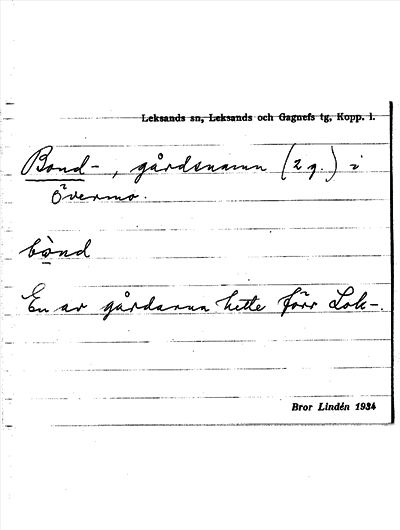 Leksands sn, Leksands och Gagnefs tg, Kopp. l.
Bond-, gårdsnamn (2 g.) i
Övermo.
bònd
En av gårdarna hette förr Lok-.
Bror Lindén 1934